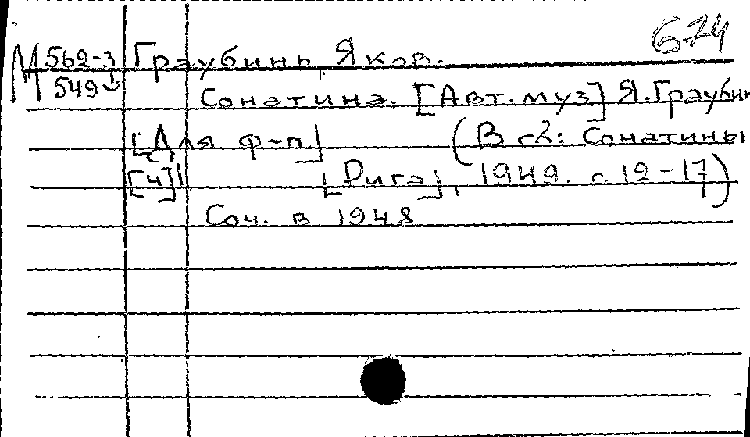 674
М 562-3 Граубинь Яков.
549
Сонатина. [Авт. муз] Я. Граубин
[Для ф-п] (В сб: Сонатины
[ч] [Рига], 1949. с. 12-17)
Соч. в 1948